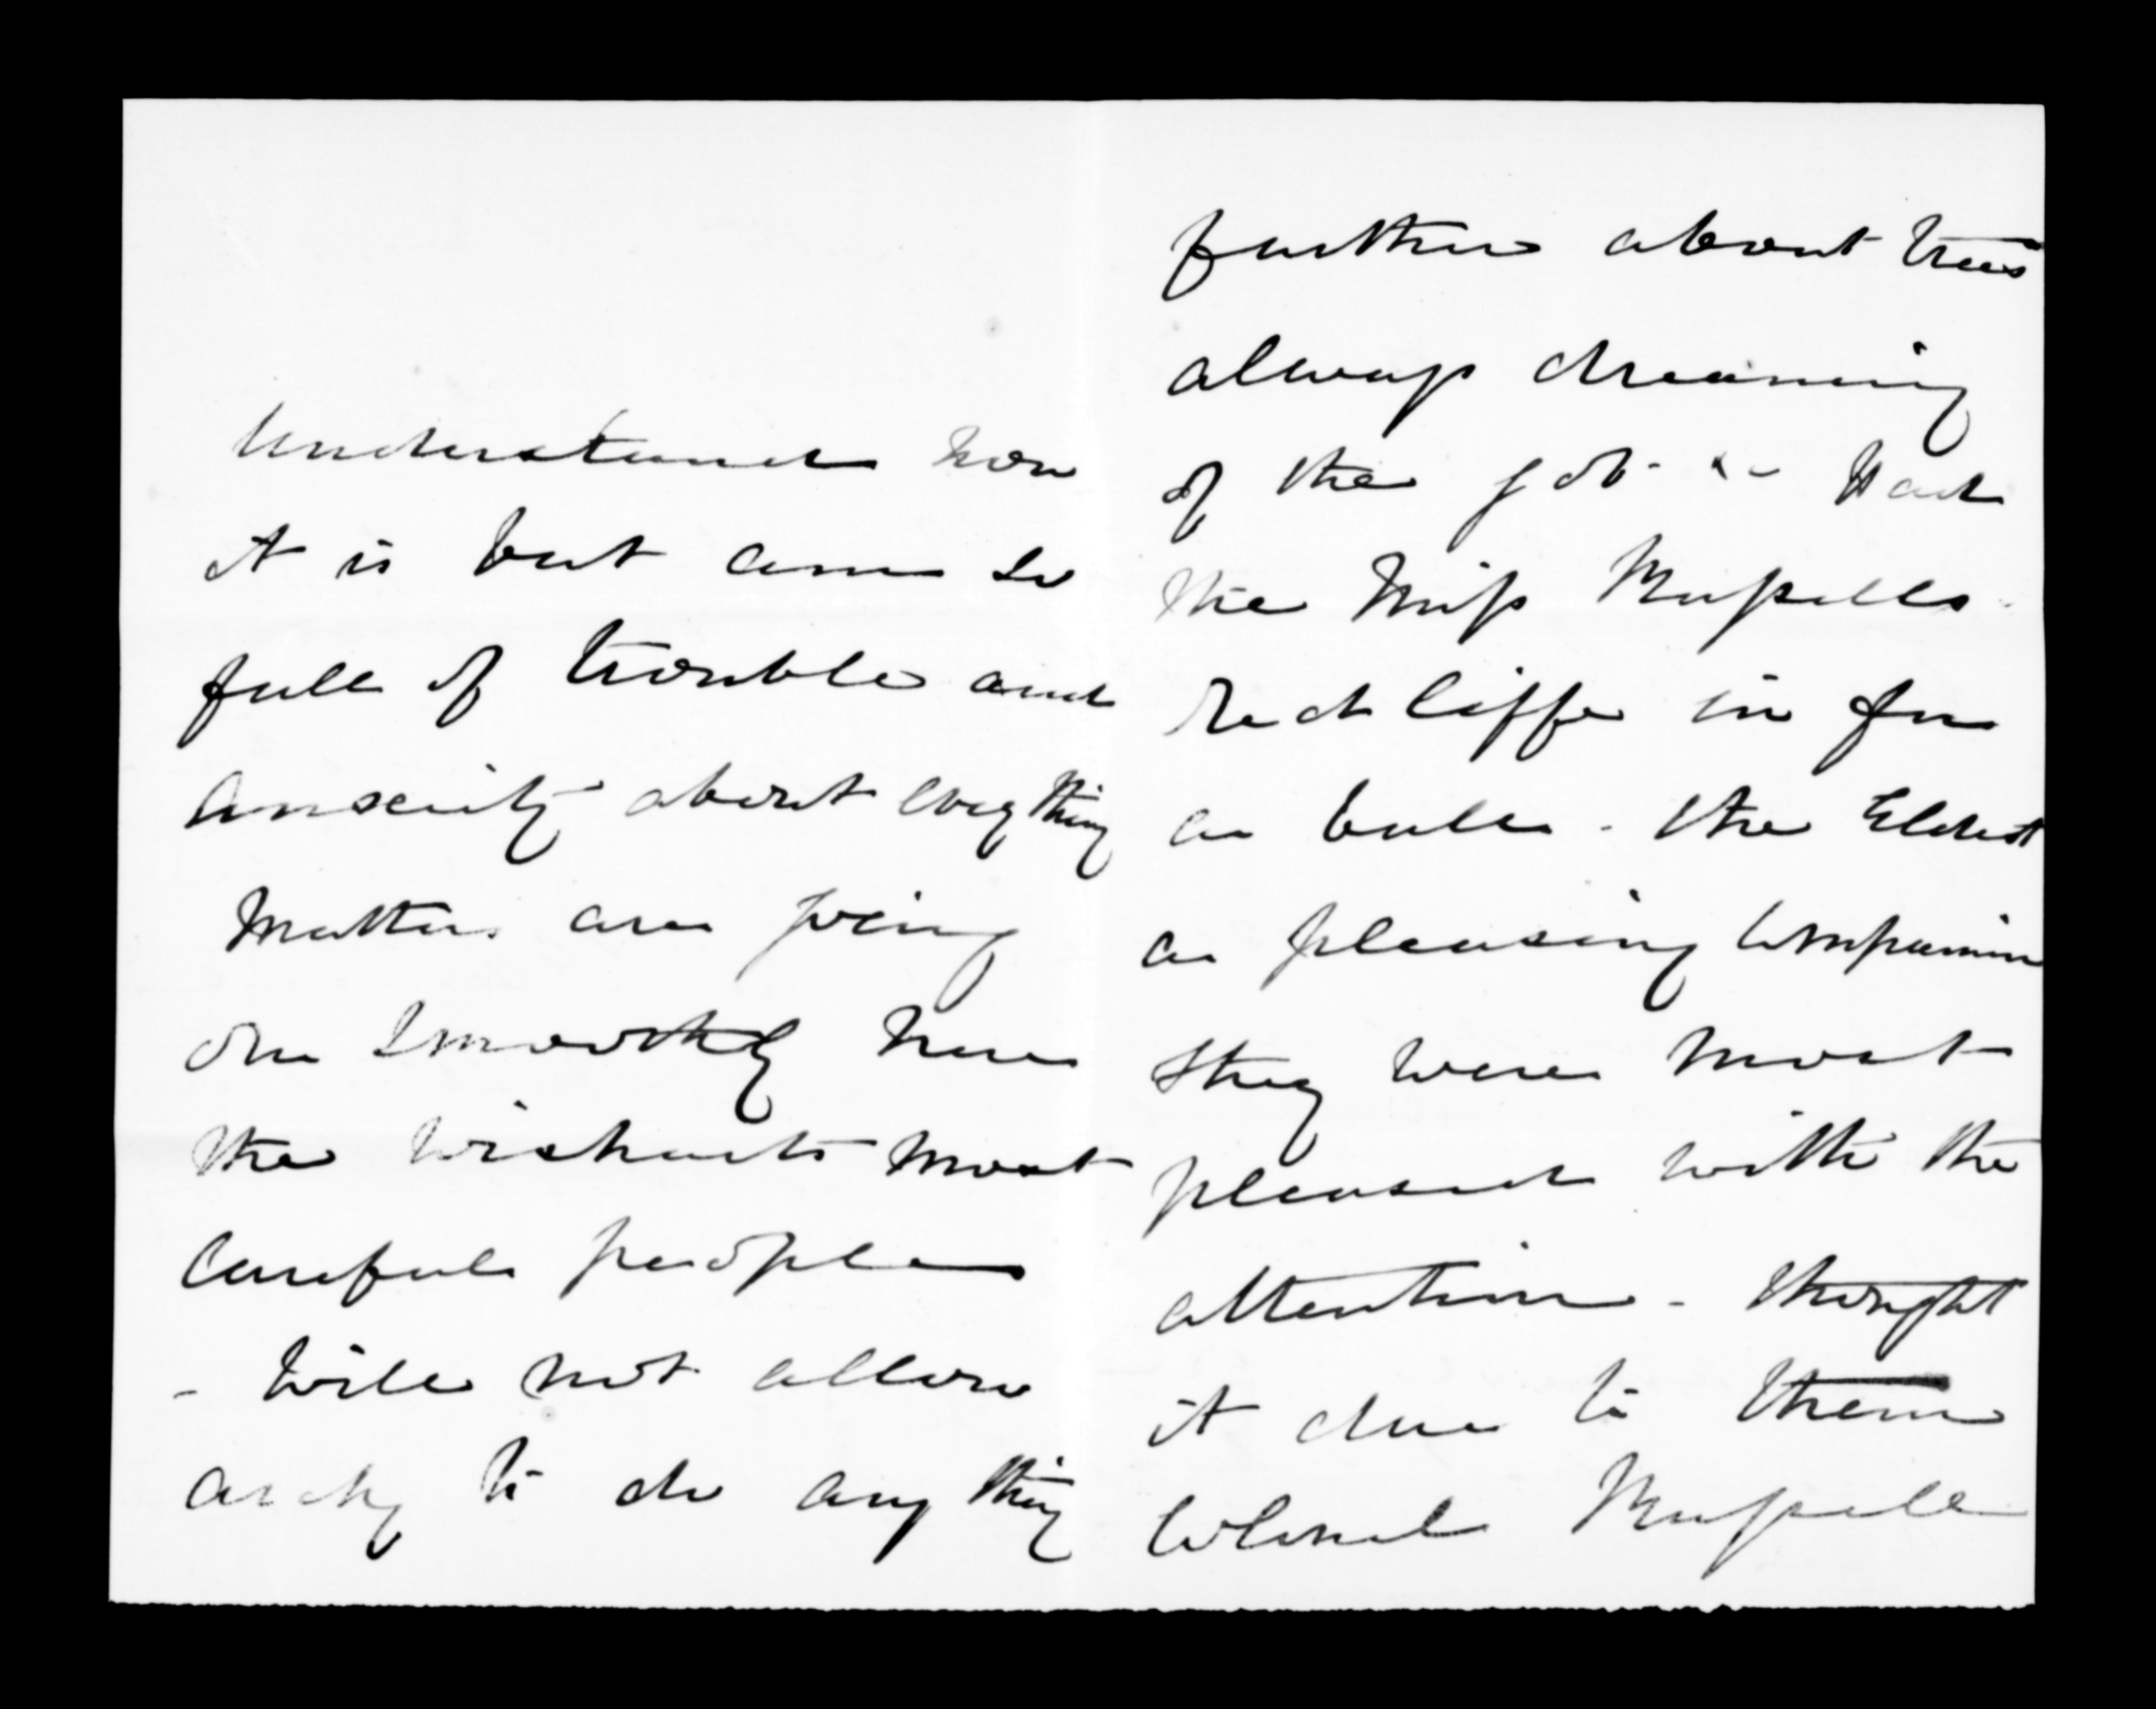 understand how
it is but am so
full of trouble and
anxiety about everything
Matters are going
on smoothly here
the Wisharts most
careful people
- will not allow
Archy to do anything
further about trees
always dreaming
of the job - Had
the Miss Russells
Redcliffe in for
a ball - the Eldest
a pleasing Companion
they were most
pleased with the
attention - thought
it due to them
Colonel Russell